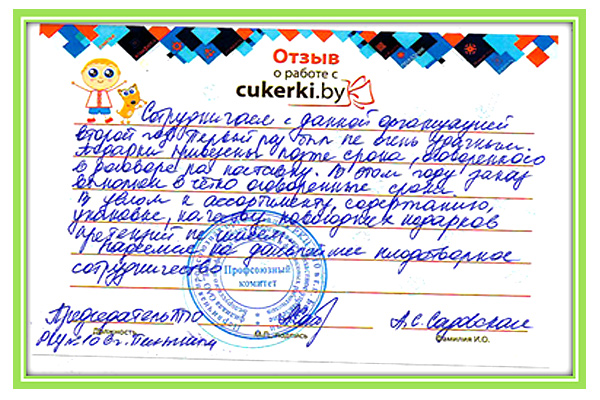 Отзыв
о работе с
cukerki.by
Сотрудничаем с данной организацией
второй год. Первый раз был не очень удачным.
Подарки привезены позже срока, оговоренного
в договоре на поставку. В этом году заказ
выполнен в чётко оговоренные сроки.
В целом к ассортименту, содержанию,
упаковке, качеству новогодних подарков
претензий не имеем.
Надеемся на дальнейшее плодотворное
сотрудничество
Профсоюзный
комитет
Председатель ППО
А.С. Садовская
Должность
подпись
Фамилия И.О.